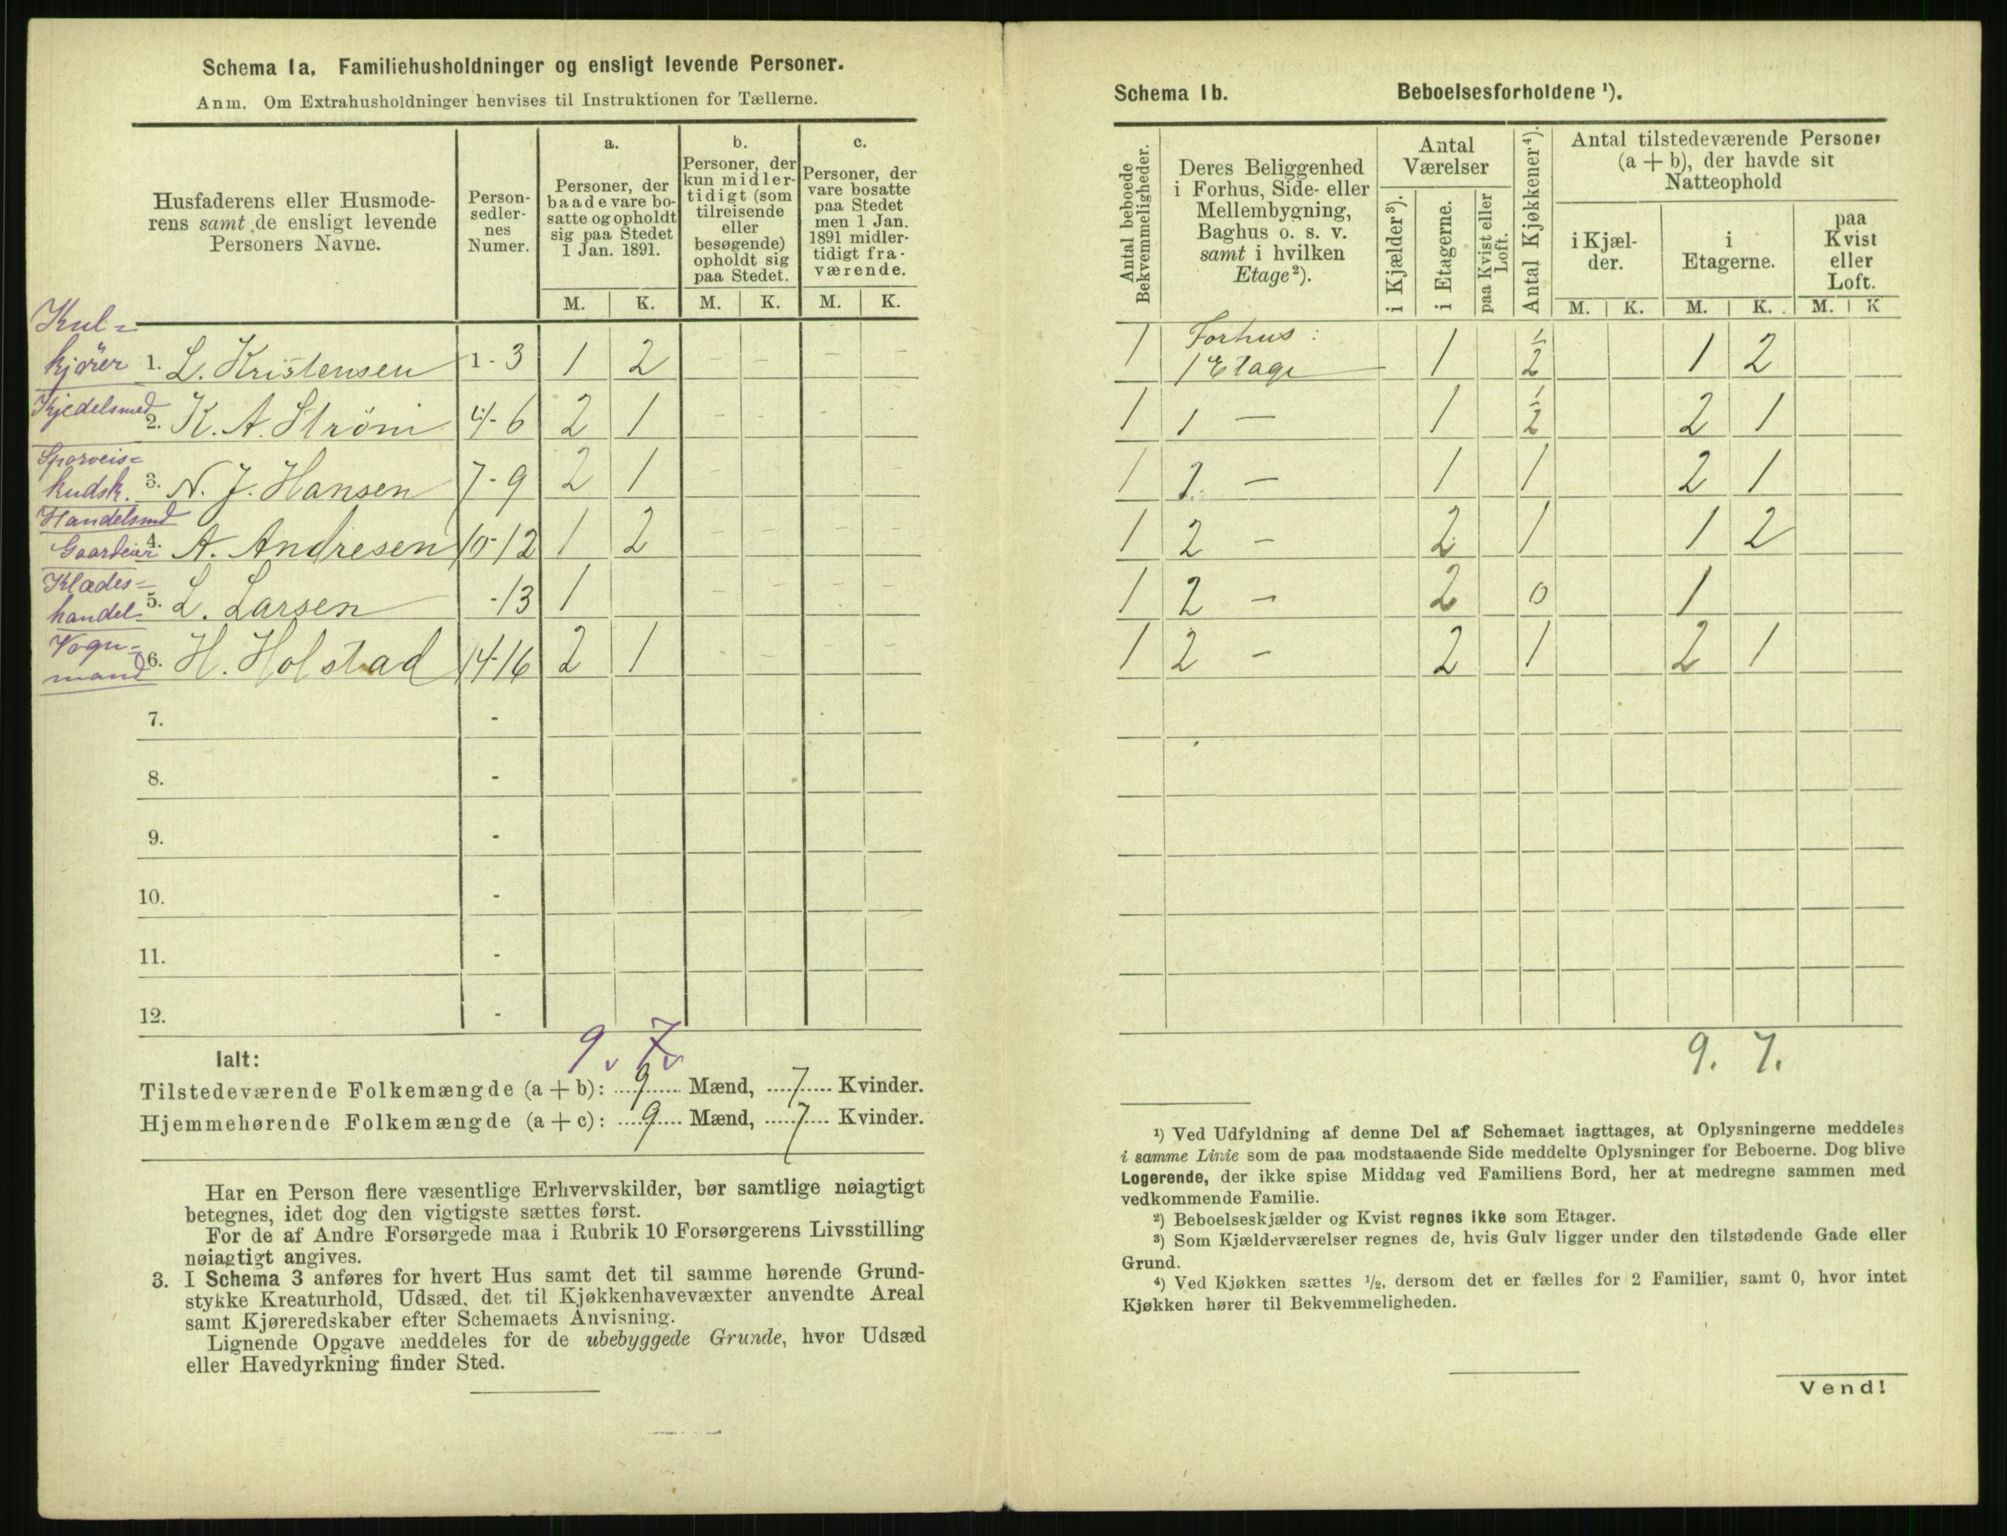 Schema 1a. Familiehusholdninger og ensligt levende Personer.
Anm. Om Extrahusholdninger henvises til Instruktionen for Tællerne.
Husfaderens eller Husmode-
rens samt de ensligt levende
Personers Navne.
Person-
sedler-
nes
Numer.
a.
Personer, der
baade vare bo-
satte og opholdt
sig paa Stedet
1 Jan. 1891.
b.
Personer, der
kun midler-
tidigt (som
tilreisende
eller
besøgende)
opholdt sig
paa Stedet.
c.
Personer, der
vare bosatte
paa Stedet
men 1 Jan.
1891 midler-
tidigt fra-
værende.
M. K. M. K. M. K.
Kul-
kjører 1. L. Kristensen 1-3 1 2 - - - -
Kjedelsmed
2. K. A. Strøm 4-6 2 1 - - - -
Sporveis-
kudsk. 3. N. J. Hansen 7-9 2 1 - - - -
Handelsmd
Gaardeier 4. A. Andresen 10-12 1 2 - - - -
Klædes-
handel 5. L. Larsen -13 1 - - - -
Vogn-
mand 6. H. Holstad 14-16 2 1
7. -
8. -
9. -
10. -
11. -
12. -
9. 7.
Ialt:
Tilstedeværende Folkemængde (a + b): 9 Mænd, 7 Kvinder.
Hjemmehørende Folkemængde (a + c): 9 Mænd, 7 Kvinder.
Har en Person flere væsentlige Erhvervskilder, bør samtlige nøiagtigt
betegnes, idet dog den vigtigste sættes først.
For de af Andre Forsørgede maa i Rubrik 10 Forsørgerens Livsstilling
nøiagtigt angives.
3. I Schema 3 anføres for hvert Hus samt det til samme hørende Grund-
stykke Kreaturhold, Udsæd, det til Kjøkkenhavevæxter anvendte Areal
samt Kjøreredskaber efter Schemaets Anvisning.
Lignende Opgave meddeles for de ubebyggede Grunde, hvor Udsæd
eller Havedyrkning finder Sted.
Schema 1b. Beboelsesforholdene ¹).
Antal beboede
Bekvemmeligheder.
Deres Beliggenhed
i Forhus, Side- eller
Mellembygning,
Baghus o. s. v.
samt i hvilken
Etage²).
Antal
Værelser
i Kjælder³).
i Etagerne.
paa Kvist eller
Loft.
Antal Kjøkkener⁴).
Antal tilstedeværende Personer
(a + b), der havde sit
Natteophold
i Kjæl-
der.
i
Etagerne.
paa
Kvist
eller
Loft.
M. K. M. K. M. K
1 Forhus:
1 Etage 1 ½ 1 2
1 1 - 1 ½ 2 1
1 2. - 1 1 2 1
1 2 - 2 1 1 2
1 2 - 2 0 1
1 2 - 2 1 2 1
9. 7.
¹) Ved Udfyldning af denne Del af Schemaet iagttages, at Oplysningerne meddeles
i samme Linie som de paa modstaaende Side meddelte Oplysninger for Beboerne. Dog blive
Logerende, der ikke spise Middag ved Familiens Bord, her at medregne sammen med
vedkommende Familie.
²) Beboelseskjælder og Kvist regnes ikke som Etager.
³) Som Kjælderværelser regnes de, hvis Gulv ligger under den tilstødende Gade eller
Grund.
⁴) Ved Kjøkken sættes ½, dersom det er fælles for 2 Familier, samt 0, hvor intet
Kjøkken hører til Bekvemmeligheden.
Vend!